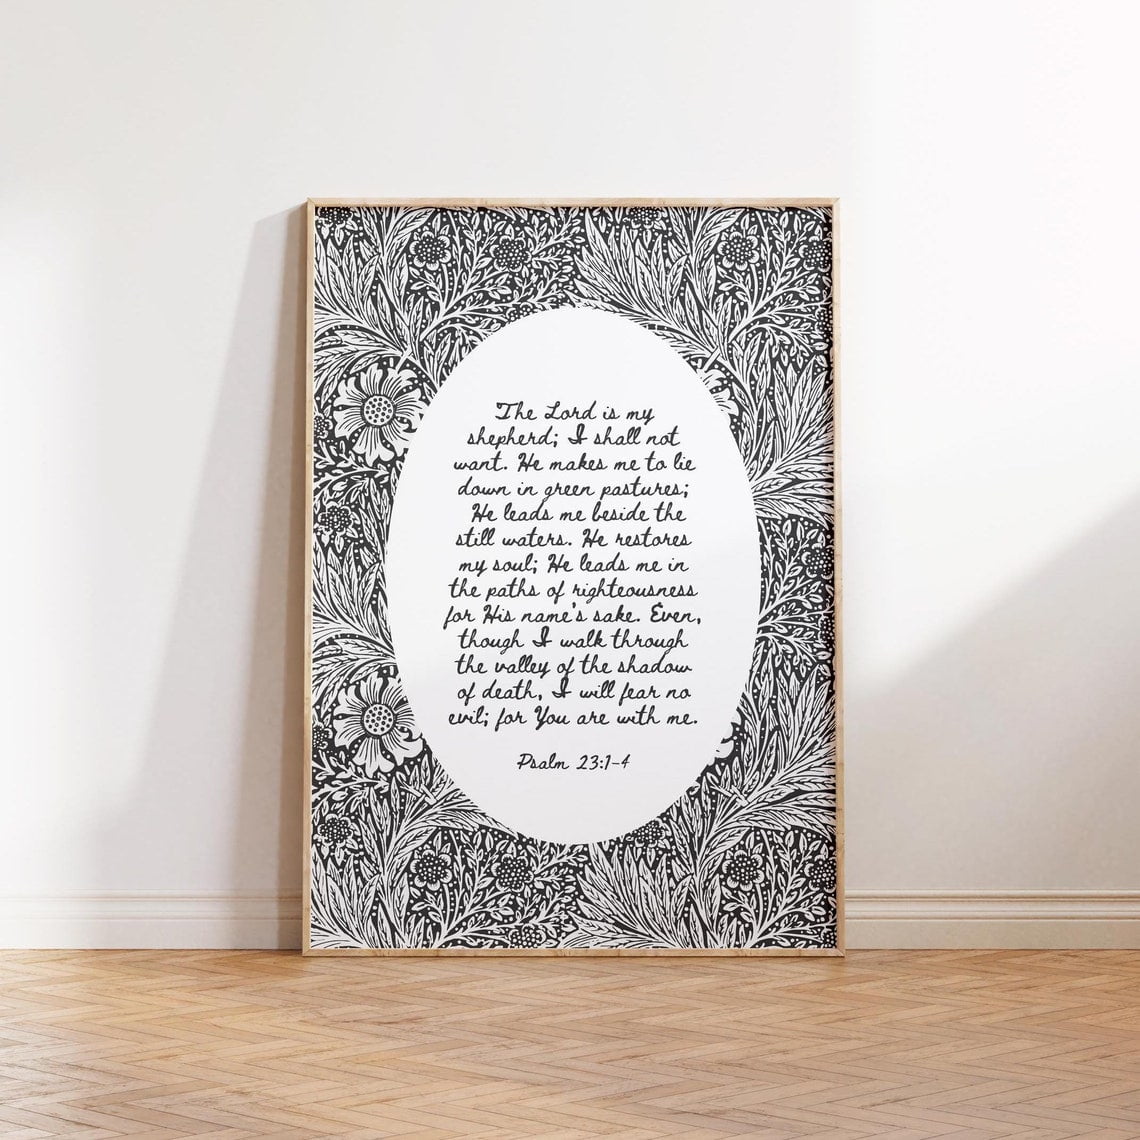 The Lord is my
shepherd; I shall not
want. He makes me to lie
down in green pastures;
He leads me beside the
still waters. He restores
my soul; He leads me in
the paths of righteousness
for His name's sake. Even,
though I walk through
the valley of the shadow
of death, I will fear no
evil; for You are with me.
Psalm 23:1-4